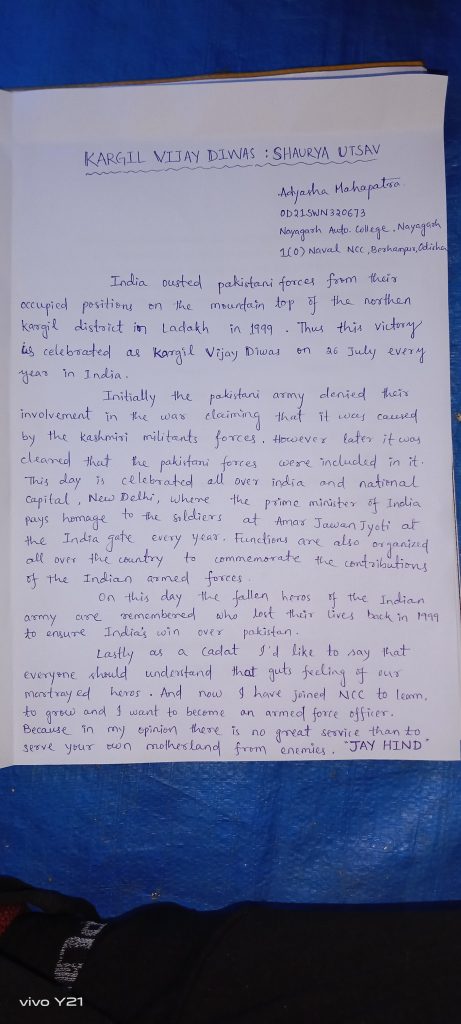 KARGIL VIJAY DIWAS : SHAURYA UTSAV
Adyasha Mahapatra
OD21SWN320673
Nayagarh Auto. College, Nayagarh
1(O) Naval NCC, Berhampur, Odisha
India ousted pakistani forces from their
occupied positions on the mountain top of the northen
kargil district in Ladakh in 1999. Thus this victory
is celebrated as Kargil Vijay Diwas on 26 July every
year in India.
Initially the pakistani army denied their
involvement in the war claiming that it was caused
by the kashmiri militants forces. However later it was
cleared that the pakistani forces were included in it.
This day is celebrated all over india and national
capital, New Delhi, where the prime minister of India
pays homage to the soldiers at Amar Jawan Jyoti at
the India gate every year. Functions are also organized
all over the country to commemorate the contributions
of the Indian armed forces.
On this day the fallen heros of the Indian
army are remembered who lost their lives back in 1999
to ensure India's win over pakistan.
Lastly as a Cadat I'd like to say that
everyone should understand that guts feeling of our
martrayed heros. And now I have joined NCC to learn,
to grow and I want to become an armed force officer.
Because in my opinion there is no great service than to
serve your own motherland from enemies. "JAY HIND"
vivo Y21